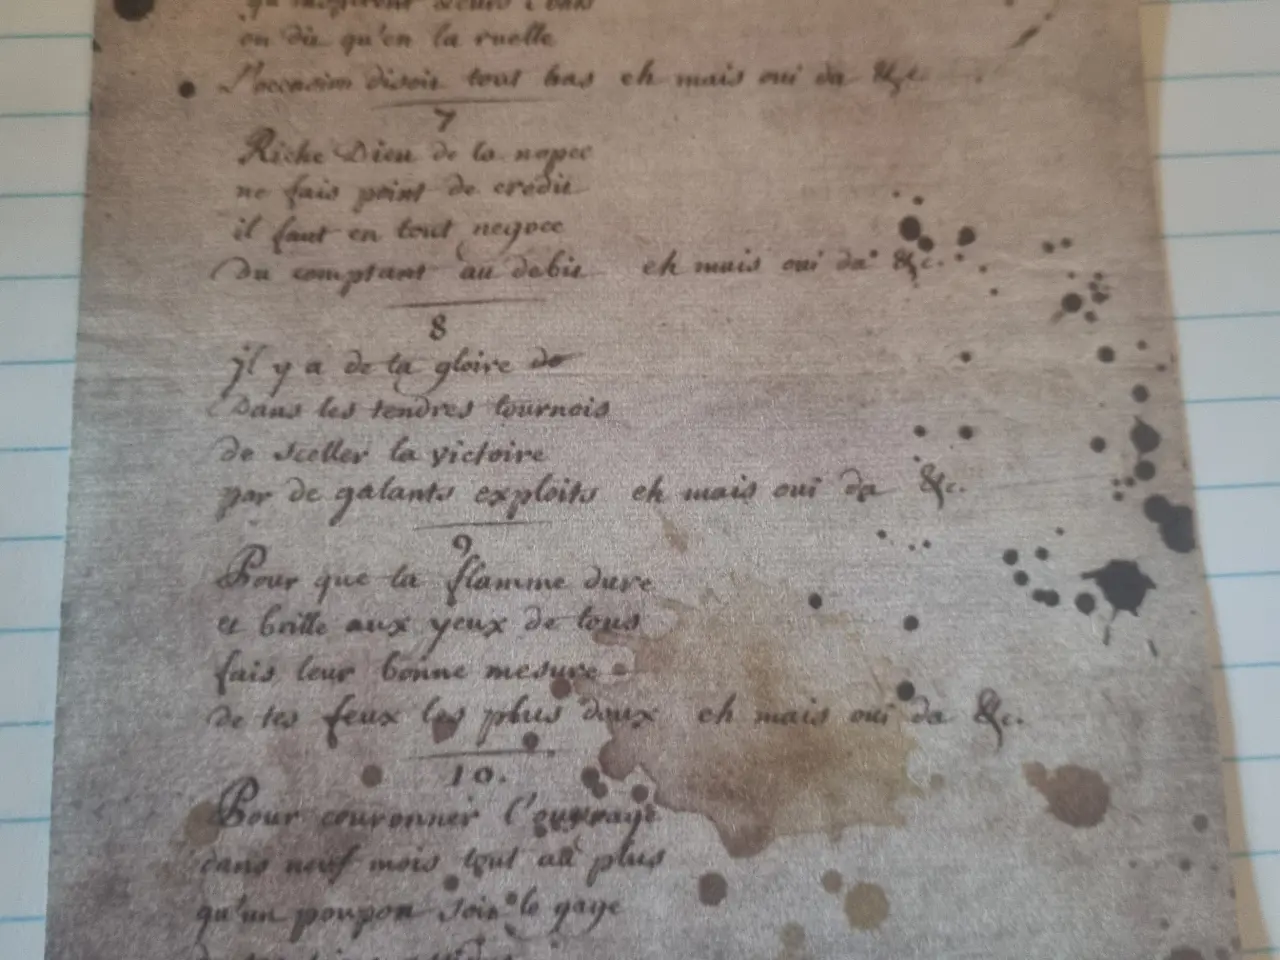 on dit qu'en la ruelle
L'occasion disoit tout bas eh mais oui da &c.
7
Riche Dieu de la nopce
ne fais point de credit
il faut en tout negoce
Du comptant au debit eh mais oui da &c.
8
jl y a de la gloire de
Dans les tendres tournois
de sceller la victoire
par de galants exploits eh mais oui da &c.
9
Pour que ta flamme dure
et brille aux yeux de tous
fais leur bonne mesure
de tes feux les plus doux eh mais oui da &c.
10.
Pour couronner l'ouvrage
dans neuf mois tout au plus
qu'un poupon soit le gage